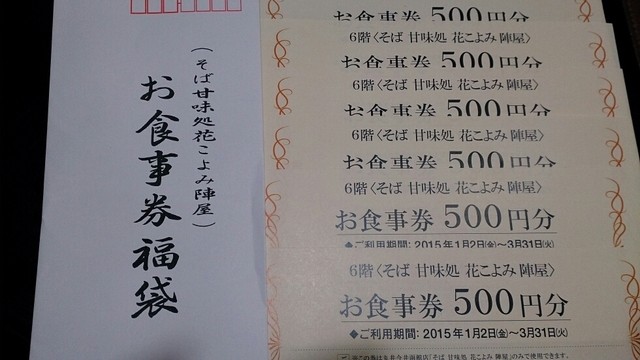 （そば甘味処花こよみ陣屋）
お食事券福袋
お食事券 500円分
6階〈そば 甘味処 花こよみ 陣屋〉
お食事券 500円分
6階〈そば 甘味処 花こよみ 陣屋〉
お食事券 500円分
6階〈そば 甘味処 花こよみ 陣屋〉
お食事券 500円分
6階〈そば 甘味処 花こよみ 陣屋〉
お食事券 500円分
◆ご利用期間: 2015年1月2日(金)～3月31日(火)
6階〈そば 甘味処 花こよみ 陣屋〉
お食事券 500円分
◆ご利用期間: 2015年1月2日(金)～3月31日(火)